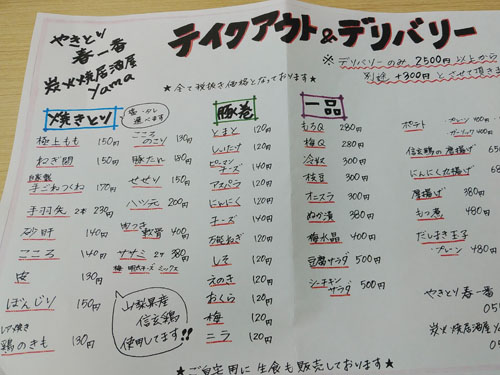 やきとり
春一番
炭火焼居酒屋
yama
テイクアウト&デリバリー
※デリバリーのみ 2500円以上から
別途 +300円 とさせて頂きま
★全て税抜き価格となっております★
焼きとり
塩・タレ
選べます
極上もも 150円
ねぎ間 150円
自家製
手ごねつくね 170円
手羽先 2本 230円
砂肝 140円
こころ 140円
皮 130円
ぼんじり 150円
レア焼き
鶏のきも 130円
こころ
のこり 130円
豚たれ 180円
せせり 150円
ハツ元 200円
肉つき
軟骨 400円
ササミ 2ケ 380円
梅・明太チーズ ミックス
山梨県産
信玄鶏
使用してます!!
豚巻
とまと 120円
しいたけ 120円
ピーマン
チーズ 140円
アスパラ 120円
にんにく 120円
チーズ 140円
万能ねぎ 120円
しそ 120円
えのき 120円
おくら 120円
梅 120円
ニラ 120円
一品
もろQ 280円
梅Q 280円
冷奴 300円
枝豆 300円
オニスラ 300円
ぬか漬 380円
梅水晶 400円
豆腐サラダ 500円
シーチキン
サラダ 500円
ポテト
プレーン 400円
ガーリック 400円
信玄鶏の唐揚げ
にんにく丸揚げ
厚揚げ 380円
もつ煮 480円
だしまき玉子
プレーン 480円
やきとり 春一番
炭火焼居酒屋
★ご自宅用に生食も販売しております★